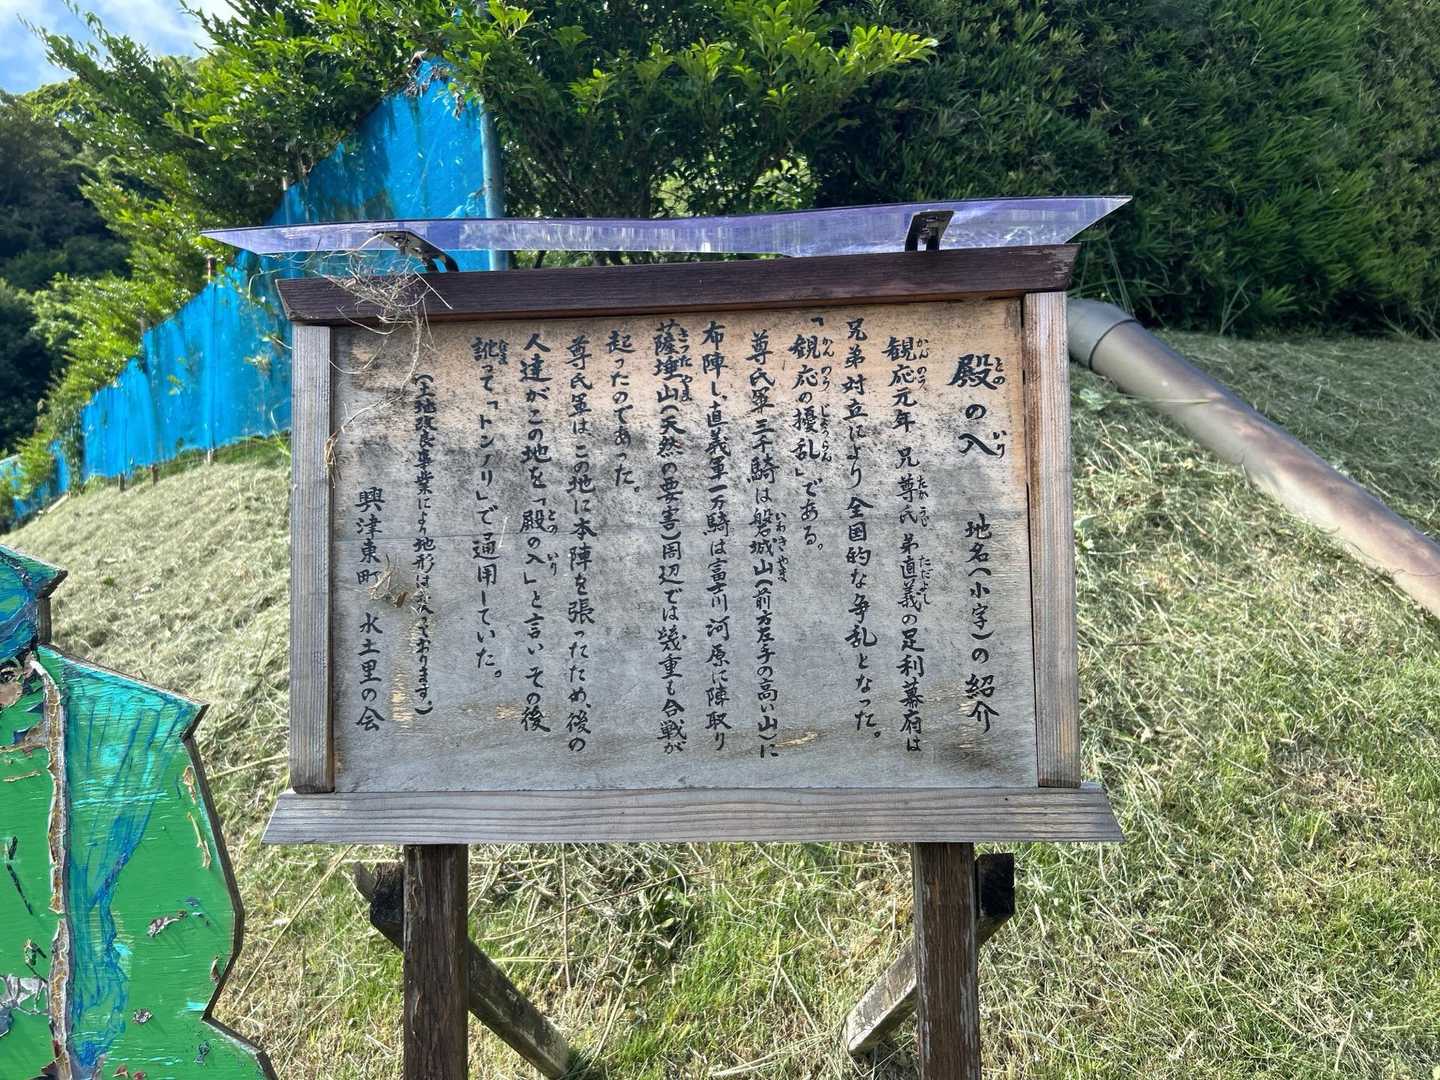 殿の入 地名(小字)の紹介
観応元年 兄尊氏 弟直義の足利幕府は
兄弟対立により 全国的な争乱となった。
「観応の擾乱」である。
尊氏軍 三千騎は磐城山(前方左手の高い山)に
布陣し、直義軍一万騎は富士川河原に陣取り
薩埵山(天然の要害)周辺では幾重も合戦が
起ったのであった。
尊氏軍は この地に本陣を張ったため、後の
人達がこの地を「殿の入」と言い その後
訛って「トンノリ」で通用していた。
(土地改良事業により地形は変わっております。)
興津東町 水土里の会